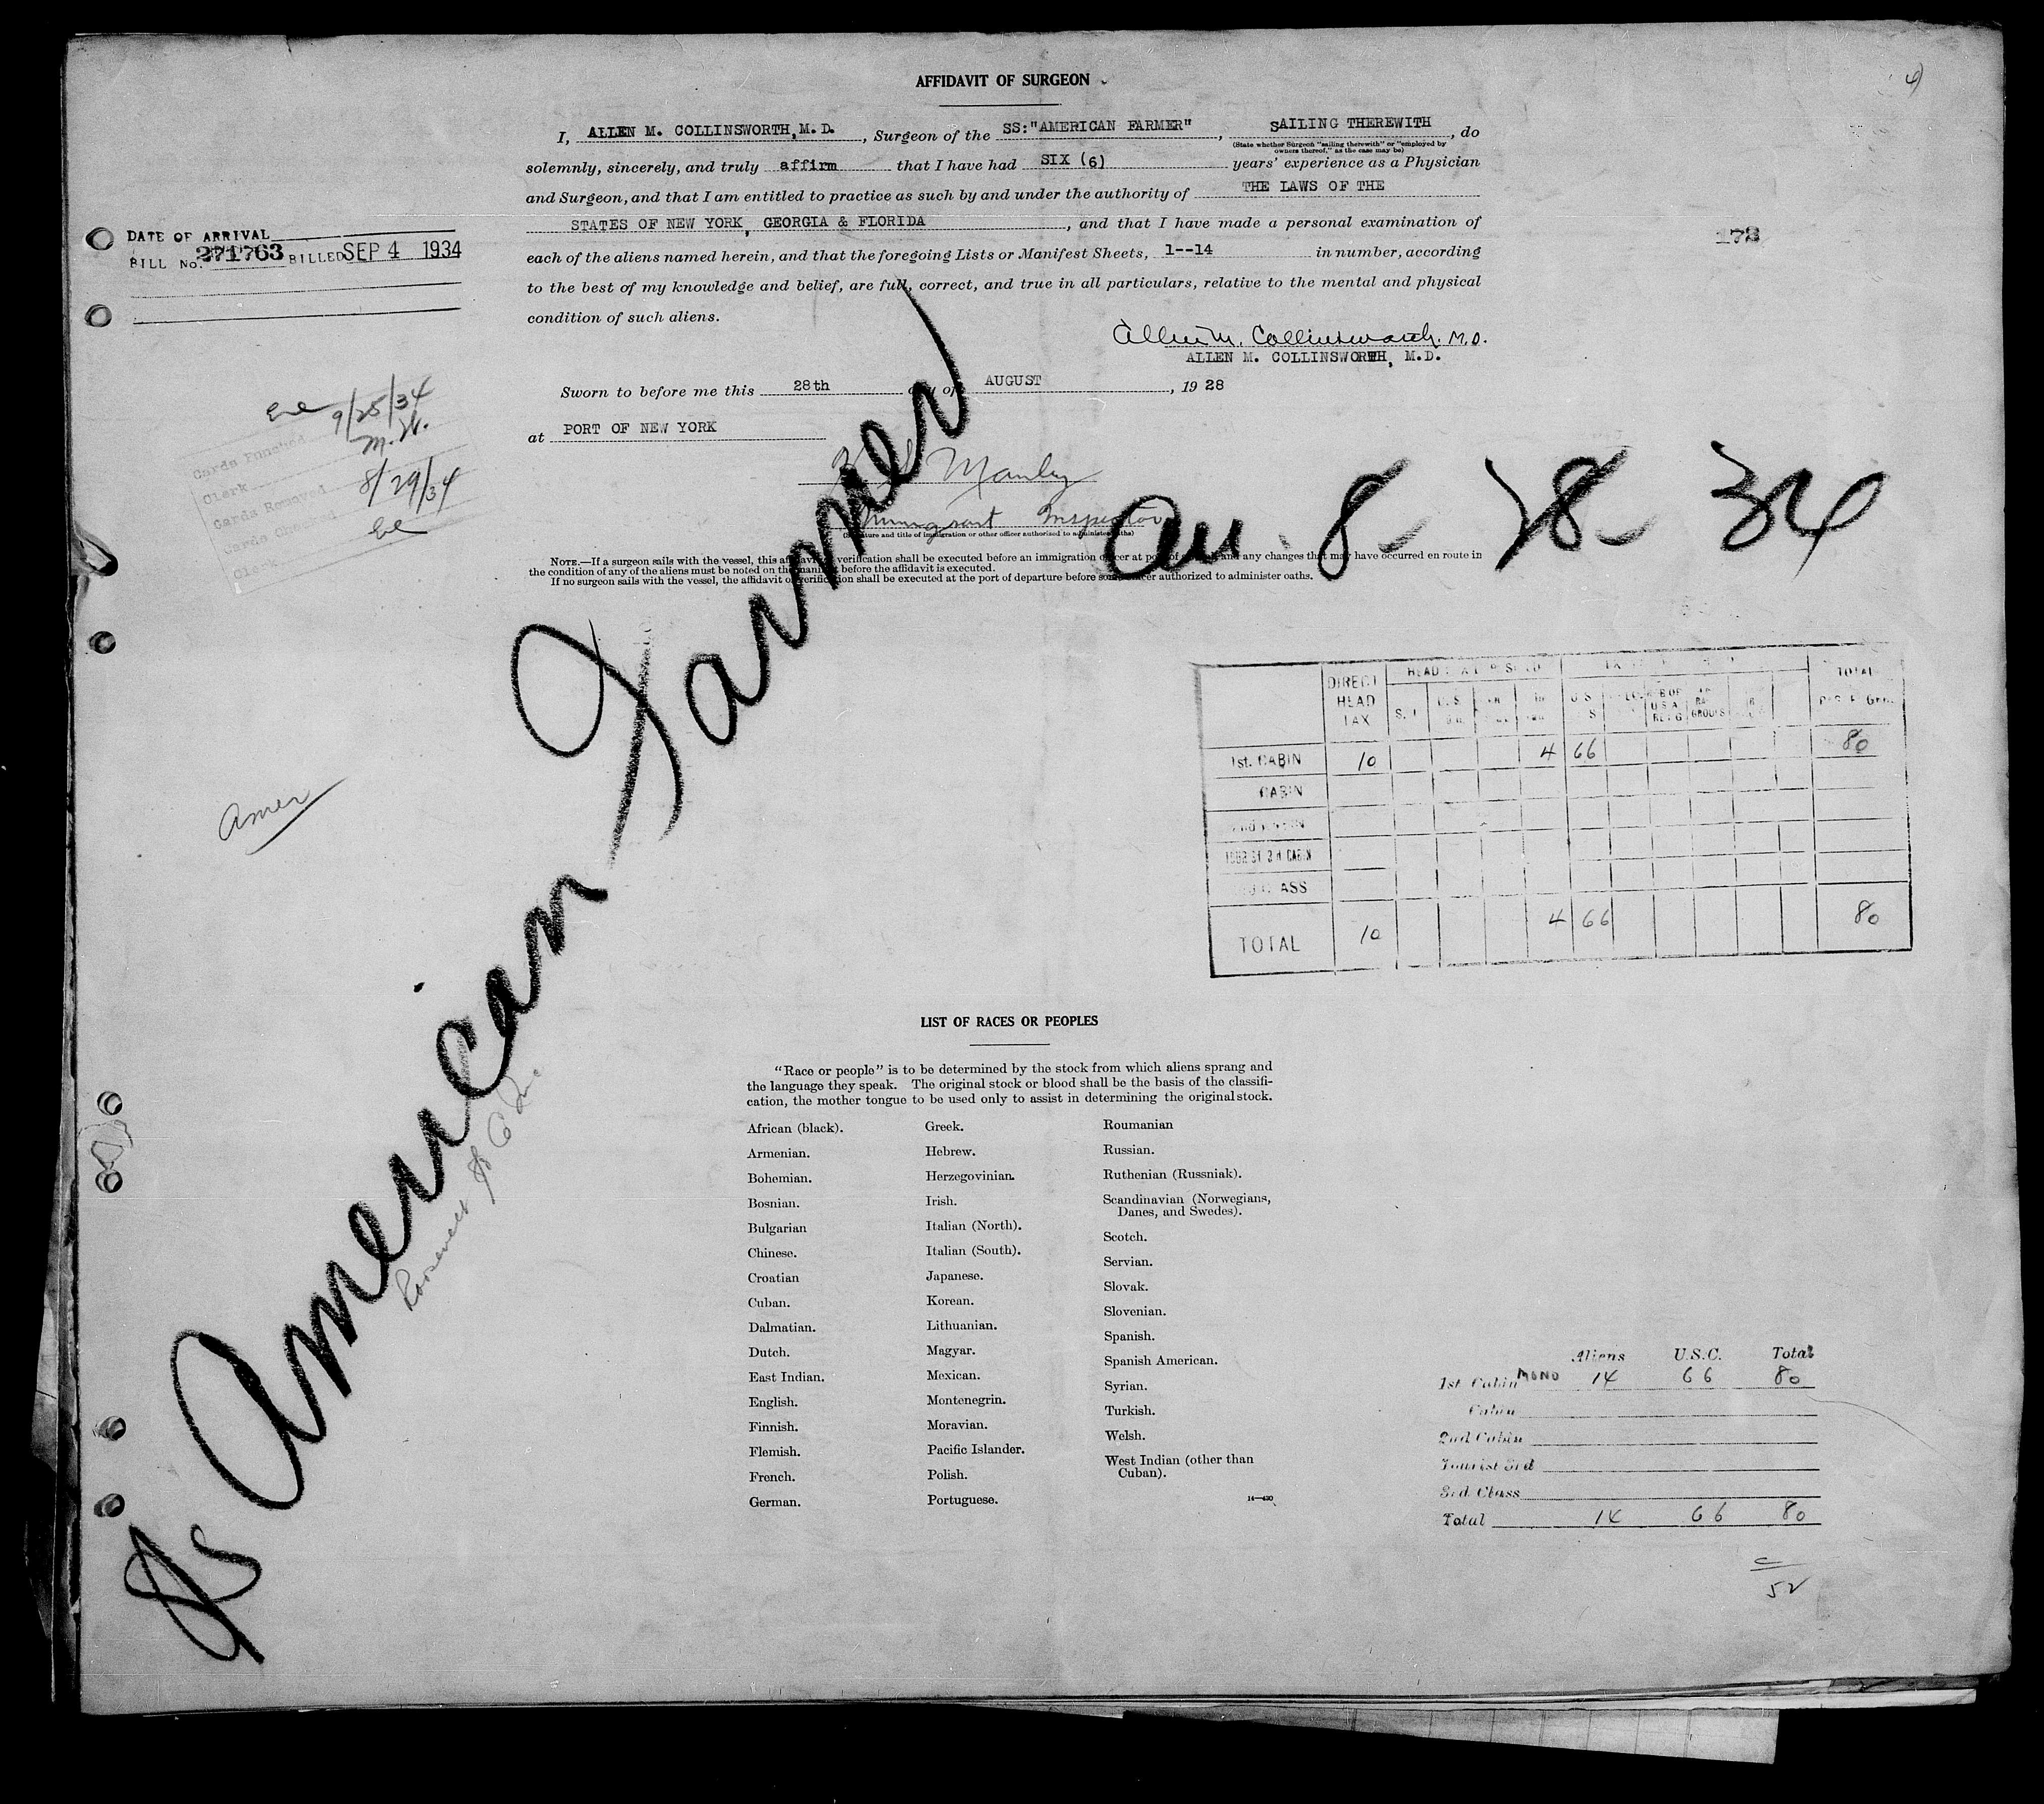 AFFIDAVIT OF SURGEON
I, ALLEN M. COLLINSWORTH, M.D. , Surgeon of the SS:"AMERICAN FARMER" , SAILING THEREWITH , do
(State whether Surgeon "sailing therewith" or "employed by
owners thereof," as the case may be)
solemnly, sincerely, and truly affirm that I have had SIX (6) years' experience as a Physician
and Surgeon, and that I am entitled to practice as such by and under the authority of THE LAWS OF THE
STATES OF NEW YORK, GEORGIA & FLORIDA , and that I have made a personal examination of
each of the aliens named herein, and that the foregoing Lists or Manifest Sheets, 1--14 in number, according
to the best of my knowledge and belief, are full, correct, and true in all particulars, relative to the mental and physical
condition of such aliens.
Allen M. Collinsworth. M.D.
ALLEN M. COLLINSWORTH, M.D.
Sworn to before me this 28th day of AUGUST , 19 28
at PORT OF NEW YORK
Manley
Immigrant Inspector
(Signature and title of immigration or other officer authorized to administer oaths)
NOTE.—If a surgeon sails with the vessel, this affidavit verification shall be executed before an immigration officer at port of and any changes that may have occurred en route in
the condition of any of the aliens must be noted on the manifest before the affidavit is executed.
If no surgeon sails with the vessel, the affidavit or verification shall be executed at the port of departure before some officer authorized to administer oaths.
DATE OF ARRIVAL
BILL No. 271763 BILLED SEP 4 1934
173
9/25/34
M.W.
Cards Punched
Clerk
Cards Removed 8/29/34
Cards Checked
Clerk
SS American Farmer
Arr. 8-28-34
Amer
Roosevelt
DIRECT HEAD TAX
TOTAL
1st. CABIN 10 4 66 80
CABIN
TOTAL 10 4 66 80
LIST OF RACES OR PEOPLES
"Race or people" is to be determined by the stock from which aliens sprang and
the language they speak. The original stock or blood shall be the basis of the classifi-
cation, the mother tongue to be used only to assist in determining the original stock.
African (black).
Armenian.
Bohemian.
Bosnian.
Bulgarian
Chinese.
Croatian
Cuban.
Dalmatian.
Dutch.
East Indian.
English.
Finnish.
Flemish.
French.
German.
Greek.
Hebrew.
Herzegovinian.
Irish.
Italian (North).
Italian (South).
Japanese.
Korean.
Lithuanian.
Magyar.
Mexican.
Montenegrin.
Moravian.
Pacific Islander.
Polish.
Portuguese.
Roumanian
Russian.
Ruthenian (Russniak).
Scandinavian (Norwegians,
Danes, and Swedes).
Scotch.
Servian.
Slovak.
Slovenian.
Spanish.
Spanish American.
Syrian.
Turkish.
Welsh.
West Indian (other than
Cuban).
14—430
Aliens U.S.C. Total
1st Cabin MONO 14 66 80
Cabin
2nd Cabin
Tourist 3rd
3rd Class
Total 14 66 80
52